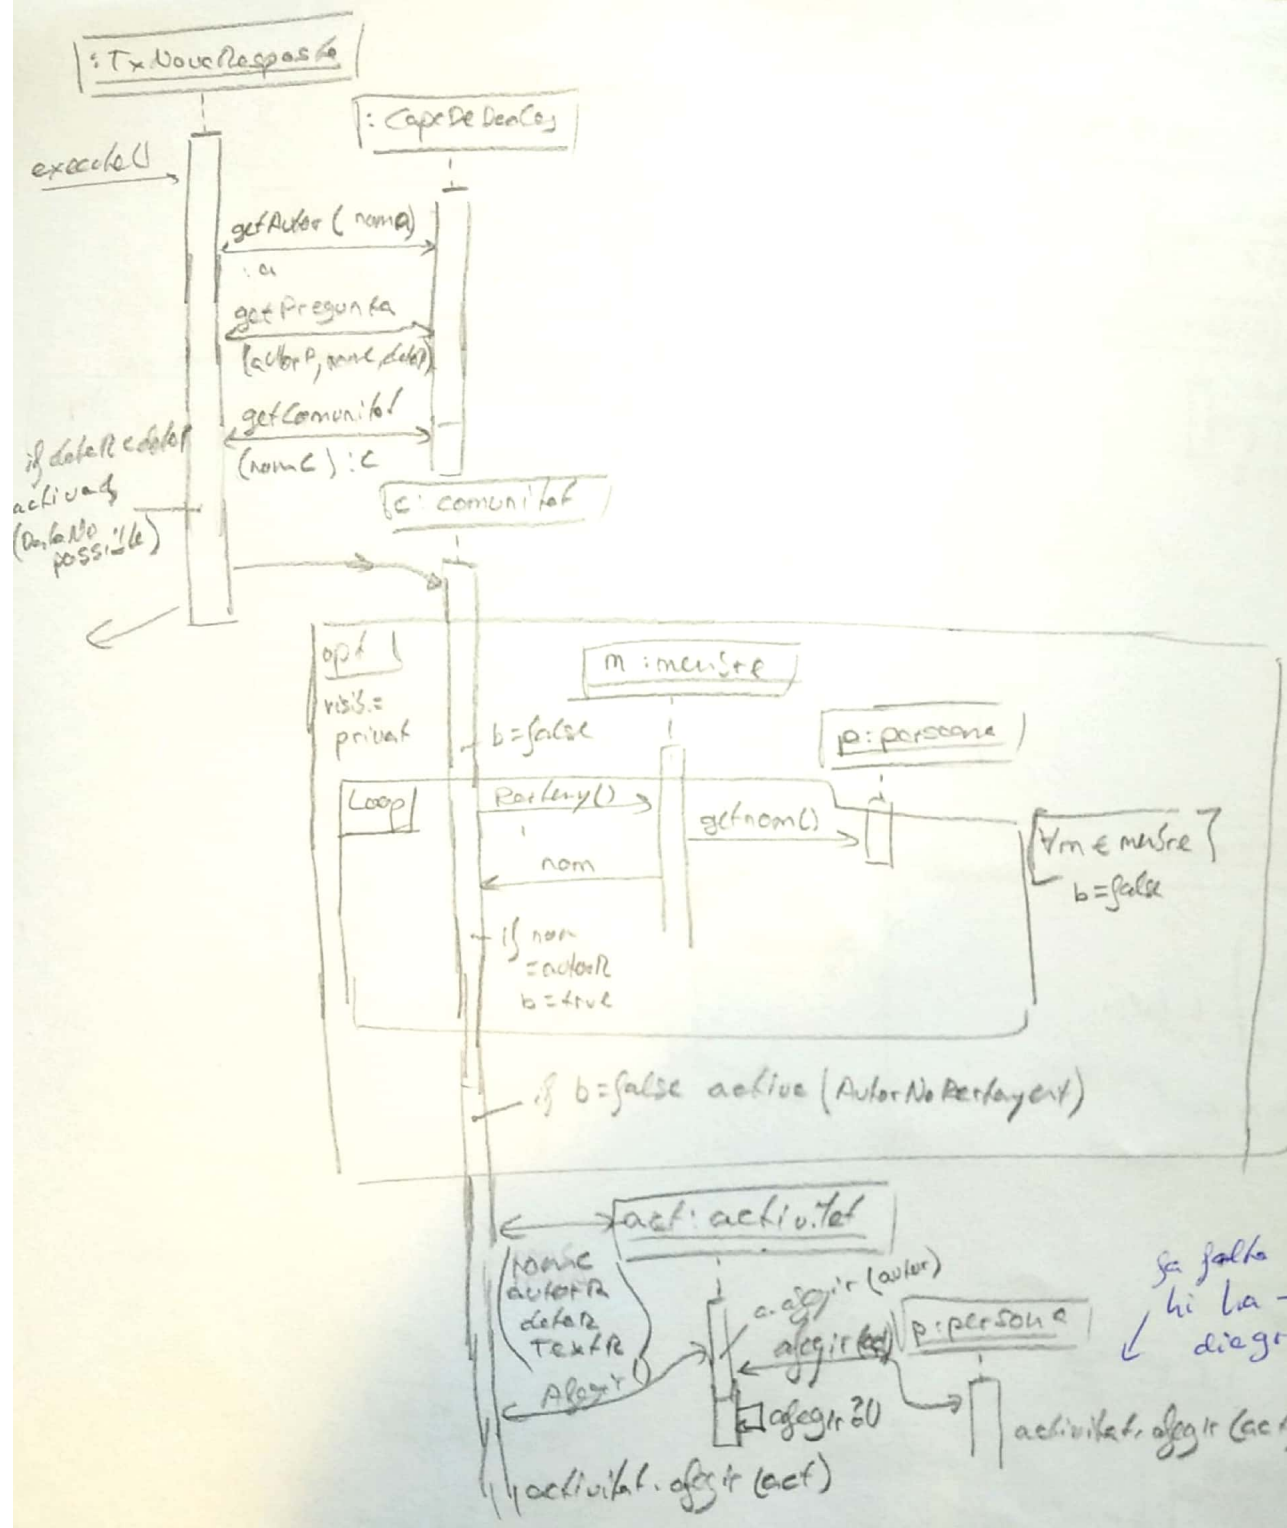 :TxNovaResposta
:CapaDeDades
execute()
getAutor(nomA)
:a
getPregunta
(autorP, nomC, dataP)
getComunitat
(nomC):c
if dataR<dataP
activa
(DataNo
possible)
c:comunitat
opt
visib.=
privat
m:membre
p:persona
b=false
Loop
Pertany()
getnom()
nom
∀m∈membre
b=false
if nom
=autorR
b=true
if b=false activa (AutorNoPertanyent)
act:activitat
nomC
autorR
dataR
TextR
Afegir
a.afegir(autor)
afegir(act)
p:persona
fa falta
hi ha
diagr
afegir30
activitat.afegir(act
activitat.afegir(act)